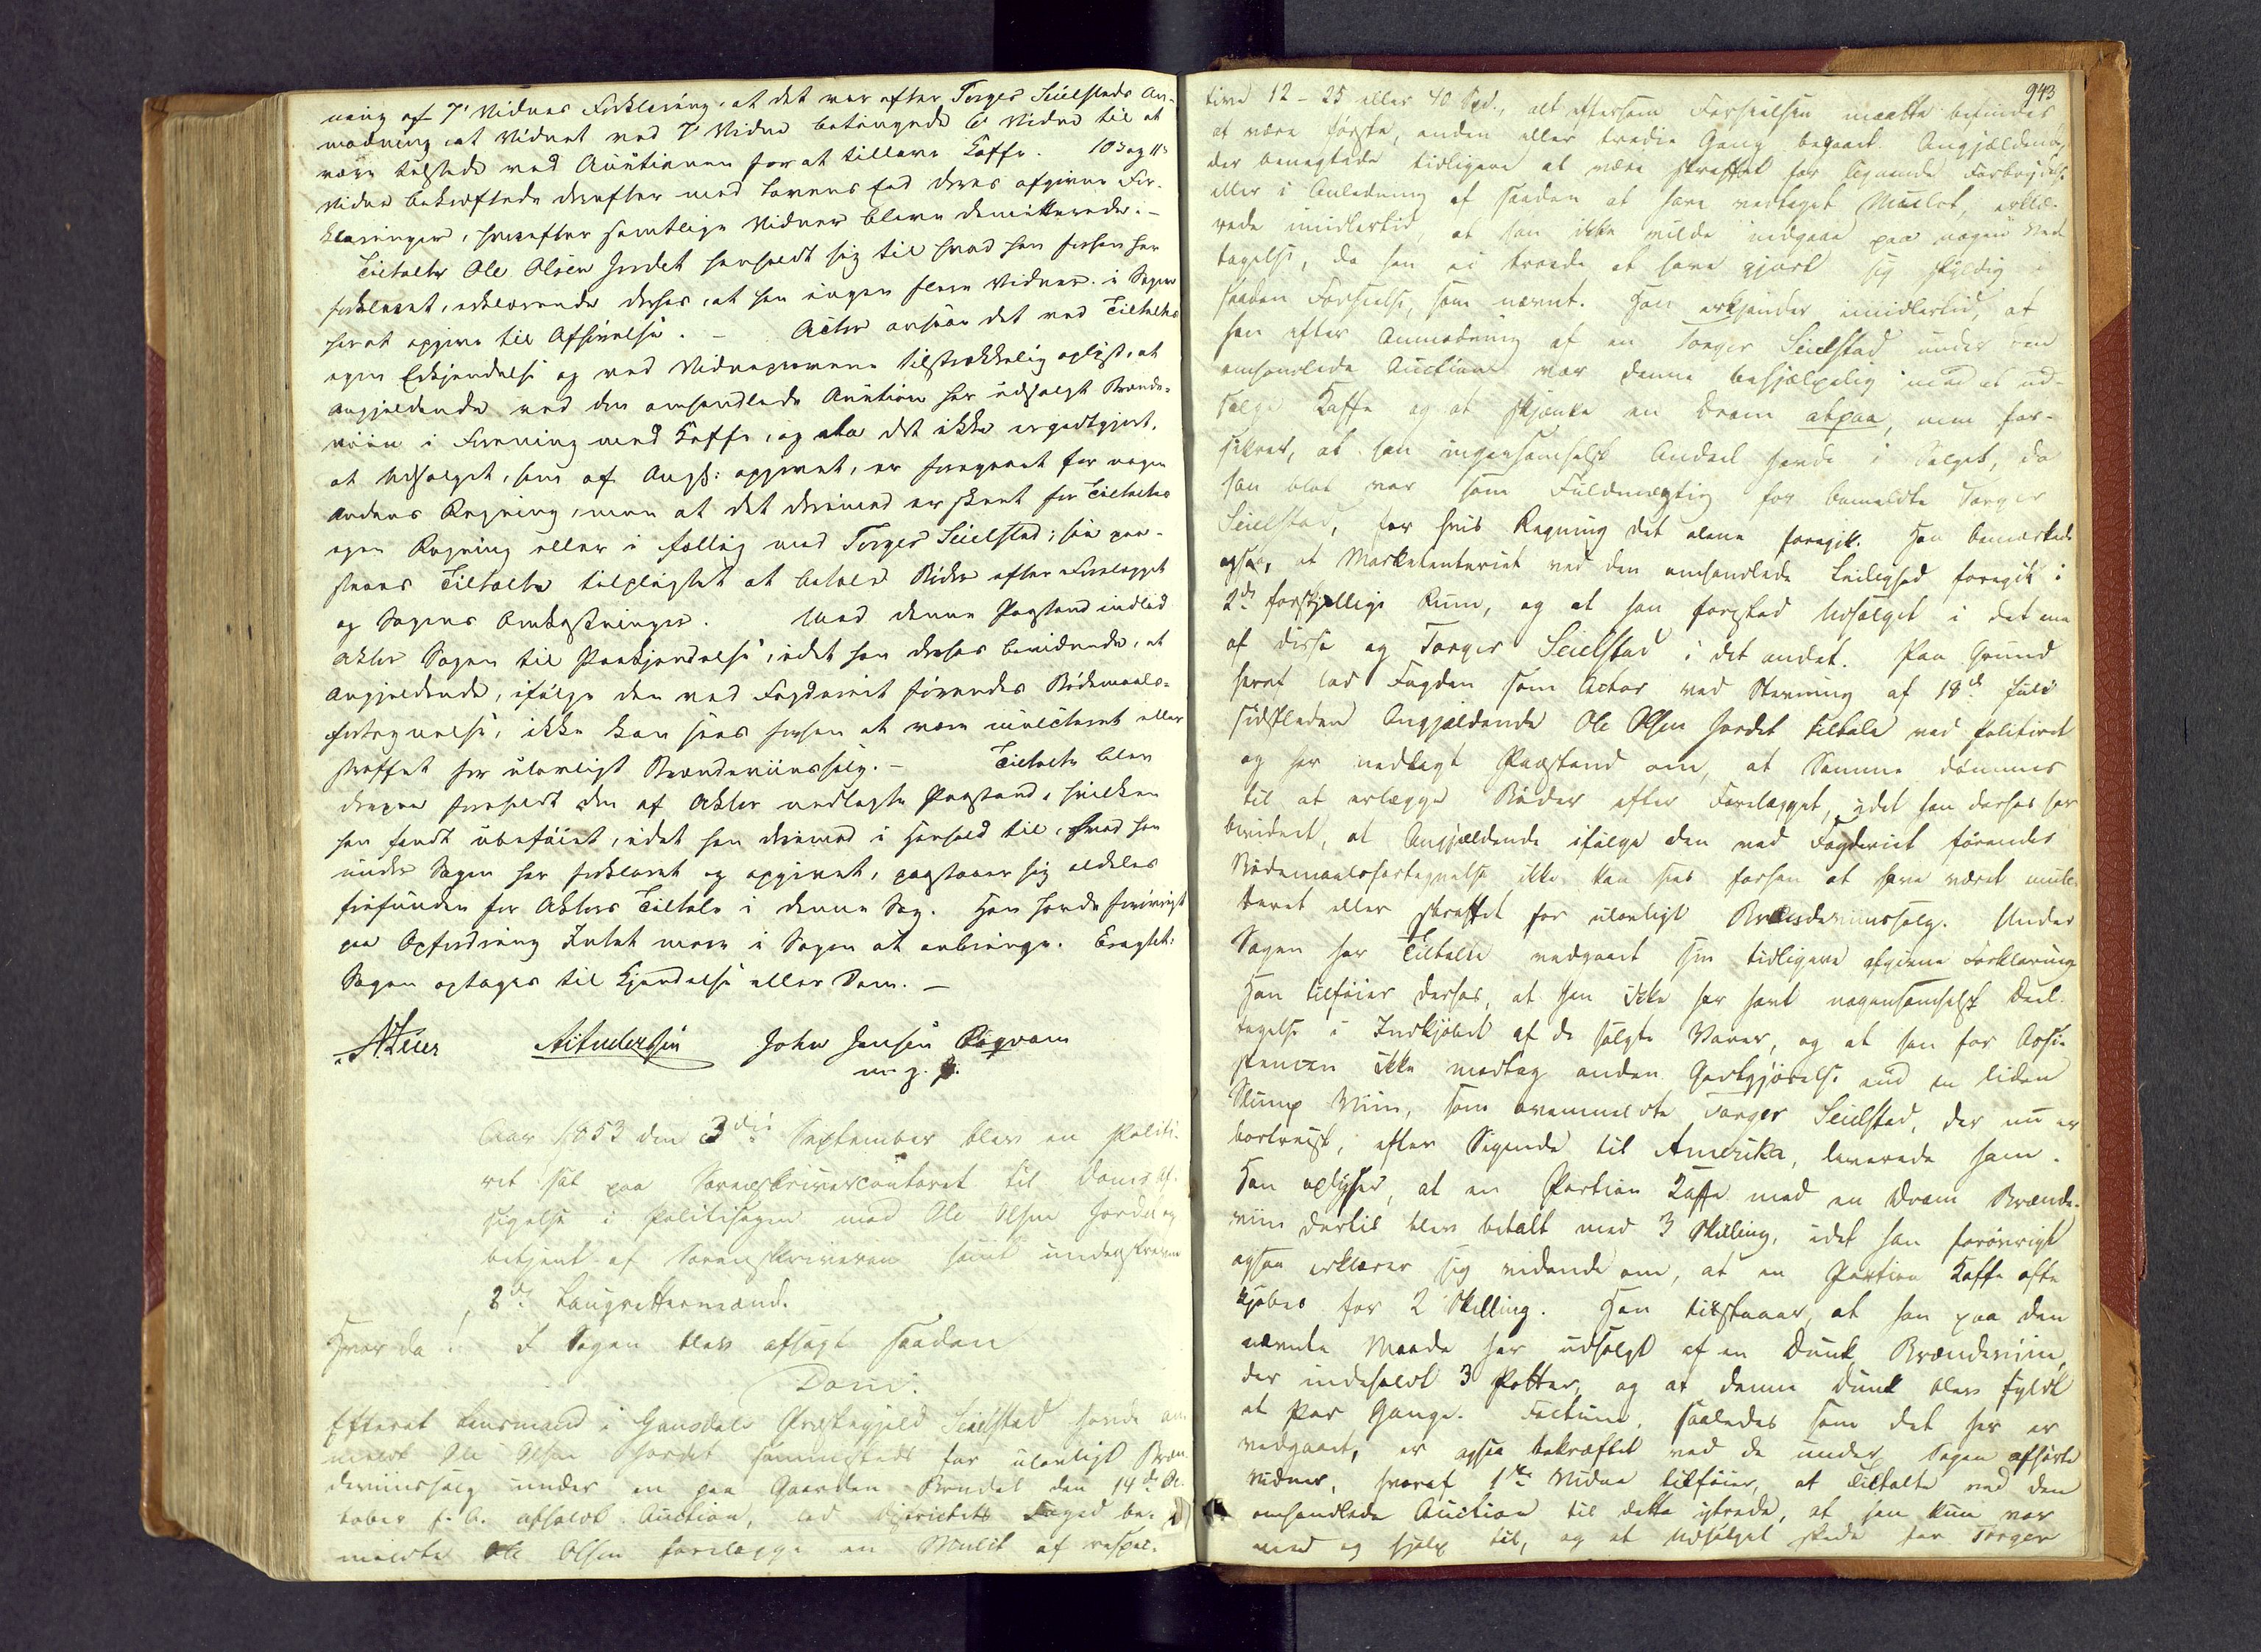 ning af 7' Vidnes Forklaring, at det var efter Torger Seielstads An-
modning, at Vidnet ved 7' Vidne betingede 6' Vidne til at
være tilstede ved Auctionen for at tillave Kaffe. 10' og 11'
Vidne bekræftede derefter med Lovens Eed deres afgivne For-
klaringer, hvorefter samtlige Vidner bleve demitterede. –
Tiltalte Ole Olsen Jordet henholdt sig til hvad han forhen har
forklaret, erklærende derhos, at han ingen flere Vidner i Sagen
har at opgive til Afhørelse. – Actor ansaae det ved Tiltaltes
egen Erkjendelse og ved Vidneprovene tilstrækkelig oplyst, at
Angjeldende ved den omhandlede Auction har udsalgt Brænde-
viin i Forening med Kaffe, og da det ikke er godtgjort,
at Udsalget, som af Angj: opgivet, er foregaaet for nogen
Andens Regning, men at det derimod er skeet for Tiltaltes
egen Regning eller i fællig med Torger Seielstad; saa paa-
staaes Tiltalte tilpligtet at betale Bøder efter Forelægget
og Sagens Omkostninger. Med denne Paastand indlod
Aktor Sagen til Paakjendelse, idet han derhos bevidnede, at
Angjeldende, ifølge den ved Fogderiet førendes Bødemaals-
fortegnelse, ikke kan sees forhen at være mulcteret eller
straffet for ulovligt Brændeviinssalg. – Tiltalte blev
derpaa foreholdt den af Aktor nedlagte Paastand, hvilken
han fandt ubeføiet, idet han derimod i Henhold til, hvad han
under Sagen har forklaret og opgivet, paastaaer sig aldeles
frifunden for Aktors Tiltale i denne Sag. Han havde forøvrigt
paa Opfordring Intet mere i Sagen at anbringe. Eragtet:
Sagen optages til Kjendelse eller Dom. –
John Jensen
m. p. P.
Aar 1853 den 3die September blev en Politi-
ret sat paa Sorenskrivercontoret til Doms Af-
sigelse i Politisagen mod Ole Olsen Jordet og
betjent af Sorenskriveren samt underskrevne
2de Laugrettesmænd.
Hvorda! I Sagen blev afsagt saadan
Dom:
Efterat Lensmand i Gausdals Præstegjeld Seielstad havde an-
meldt Ole Olsen Jordet sammesteds for ulovligt Bræn-
deviinssalg under en paa Gaarden den 14de Oc-
tober f. A. afholdt Auction, lod Districtets Foged be-
meldte Ole Olsen forelægge en Mulct af respec-
943
tive 12 – 25 eller 40 Spd., alt eftersom Forseelsen maatte befindes
at være første, anden eller tredie Gang begaaet. Angjældende,
der benegtede tidligere at være straffet for lignende Forbrydelse
eller i Anledning af saadan at have vedtaget Mulct, erklæ-
rede imidlertid, at han ikke vilde indgaae paa nogen Ved-
tagelse, da han ei troede at have gjort sig skyldig i
saadan Forseelse, som nævnt. Han erkjender imidlertid, at
han efter Anmodning af en Torger Seielstad under den
omhandlede Auction var denne behjælpelig med at ud-
sælge Kaffe og at skjænke en Dram atpaa, men for-
sikrer, at han ingensomhelst Andeel havde i Salget, da
han blot var som Fuldmægtig for bemeldte Torger
Seielstad, for hvis Regning det alene foregik. Han bemærkede
ogsaa, at Marketenteriet ved den omhandlede Leilighed foregik i
2de forskjellige Rum, og at han forestod Udsalget i det ene
af disse og Torger Seielstad i det andet. Paa Grund
heraf lod Fogden som Actor ved Stevning af 18de Juli
sidstleden Angjældende Ole Olsen Jordet tiltale ved Politiret
og har nedlagt Paastand om, at Samme dømmes
til at erlægge Bøder efter Forelægget, idet han derhos har
bevidnet, at Angjældende ifølge den ved Fogderiet førendes
Bødemaalsfortegnelse ikke kan sees forhen at have været mulc-
teret eller straffet for ulovligt Brændeviinssalg. Under
Sagen har Tiltalte vedgaaet sin tidligere afgivne Forklaring
Han tilføier derhos, at han ikke har havt nogensomhelst Deel-
tagelse i Indkjøbet af de solgte Varer, og at han for Assi-
stencen ikke modtog anden Godtgjørelse end en liden
Slump Viin, som ovenmeldte Torger Seielstad, der nu er
bortreist, efter Sigende til Amerika, leverede ham.
Han oplyser, at en Portion Kaffe med en Dram Brænde-
viin dertil blev betalt med 3 Skilling, idet han forøvrigt
ogsaa erklærer sig vidende om, at en Portion Kaffe ofte
kjøbes for 2 Skilling. Han tilstaaer, at han paa den
nævnte Maade har udsolgt af en Dunk Brændeviin,
der indeholdt 3 Potter, og at denne Dunk blev fyldt
et Par Gange. Factum, saaledes som det her er
vedgaaet, er ogsaa bekræftet ved de under Sagen afhørte
Vidner, hvoraf 1ste Vidne tilføier, at Tiltalte ved den
omhandlede Auction til dette yttrede, at han kun var
med og hjalp til, og at Udsalget skede for Torger